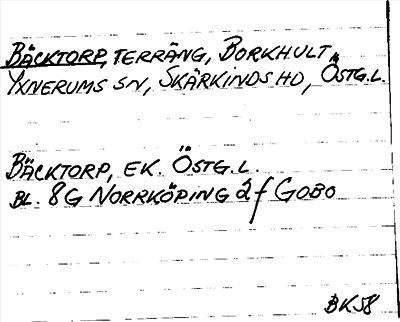 BÄCKTORP, TERRÄNG, BORKHULT
YXNERUMS SN, SKÄRKINDS HD, ÖSTG.L.
BÄCKTORP, EK. ÖSTG.L.
BL. 8G NORRKÖPING 2f GOBO
BK58